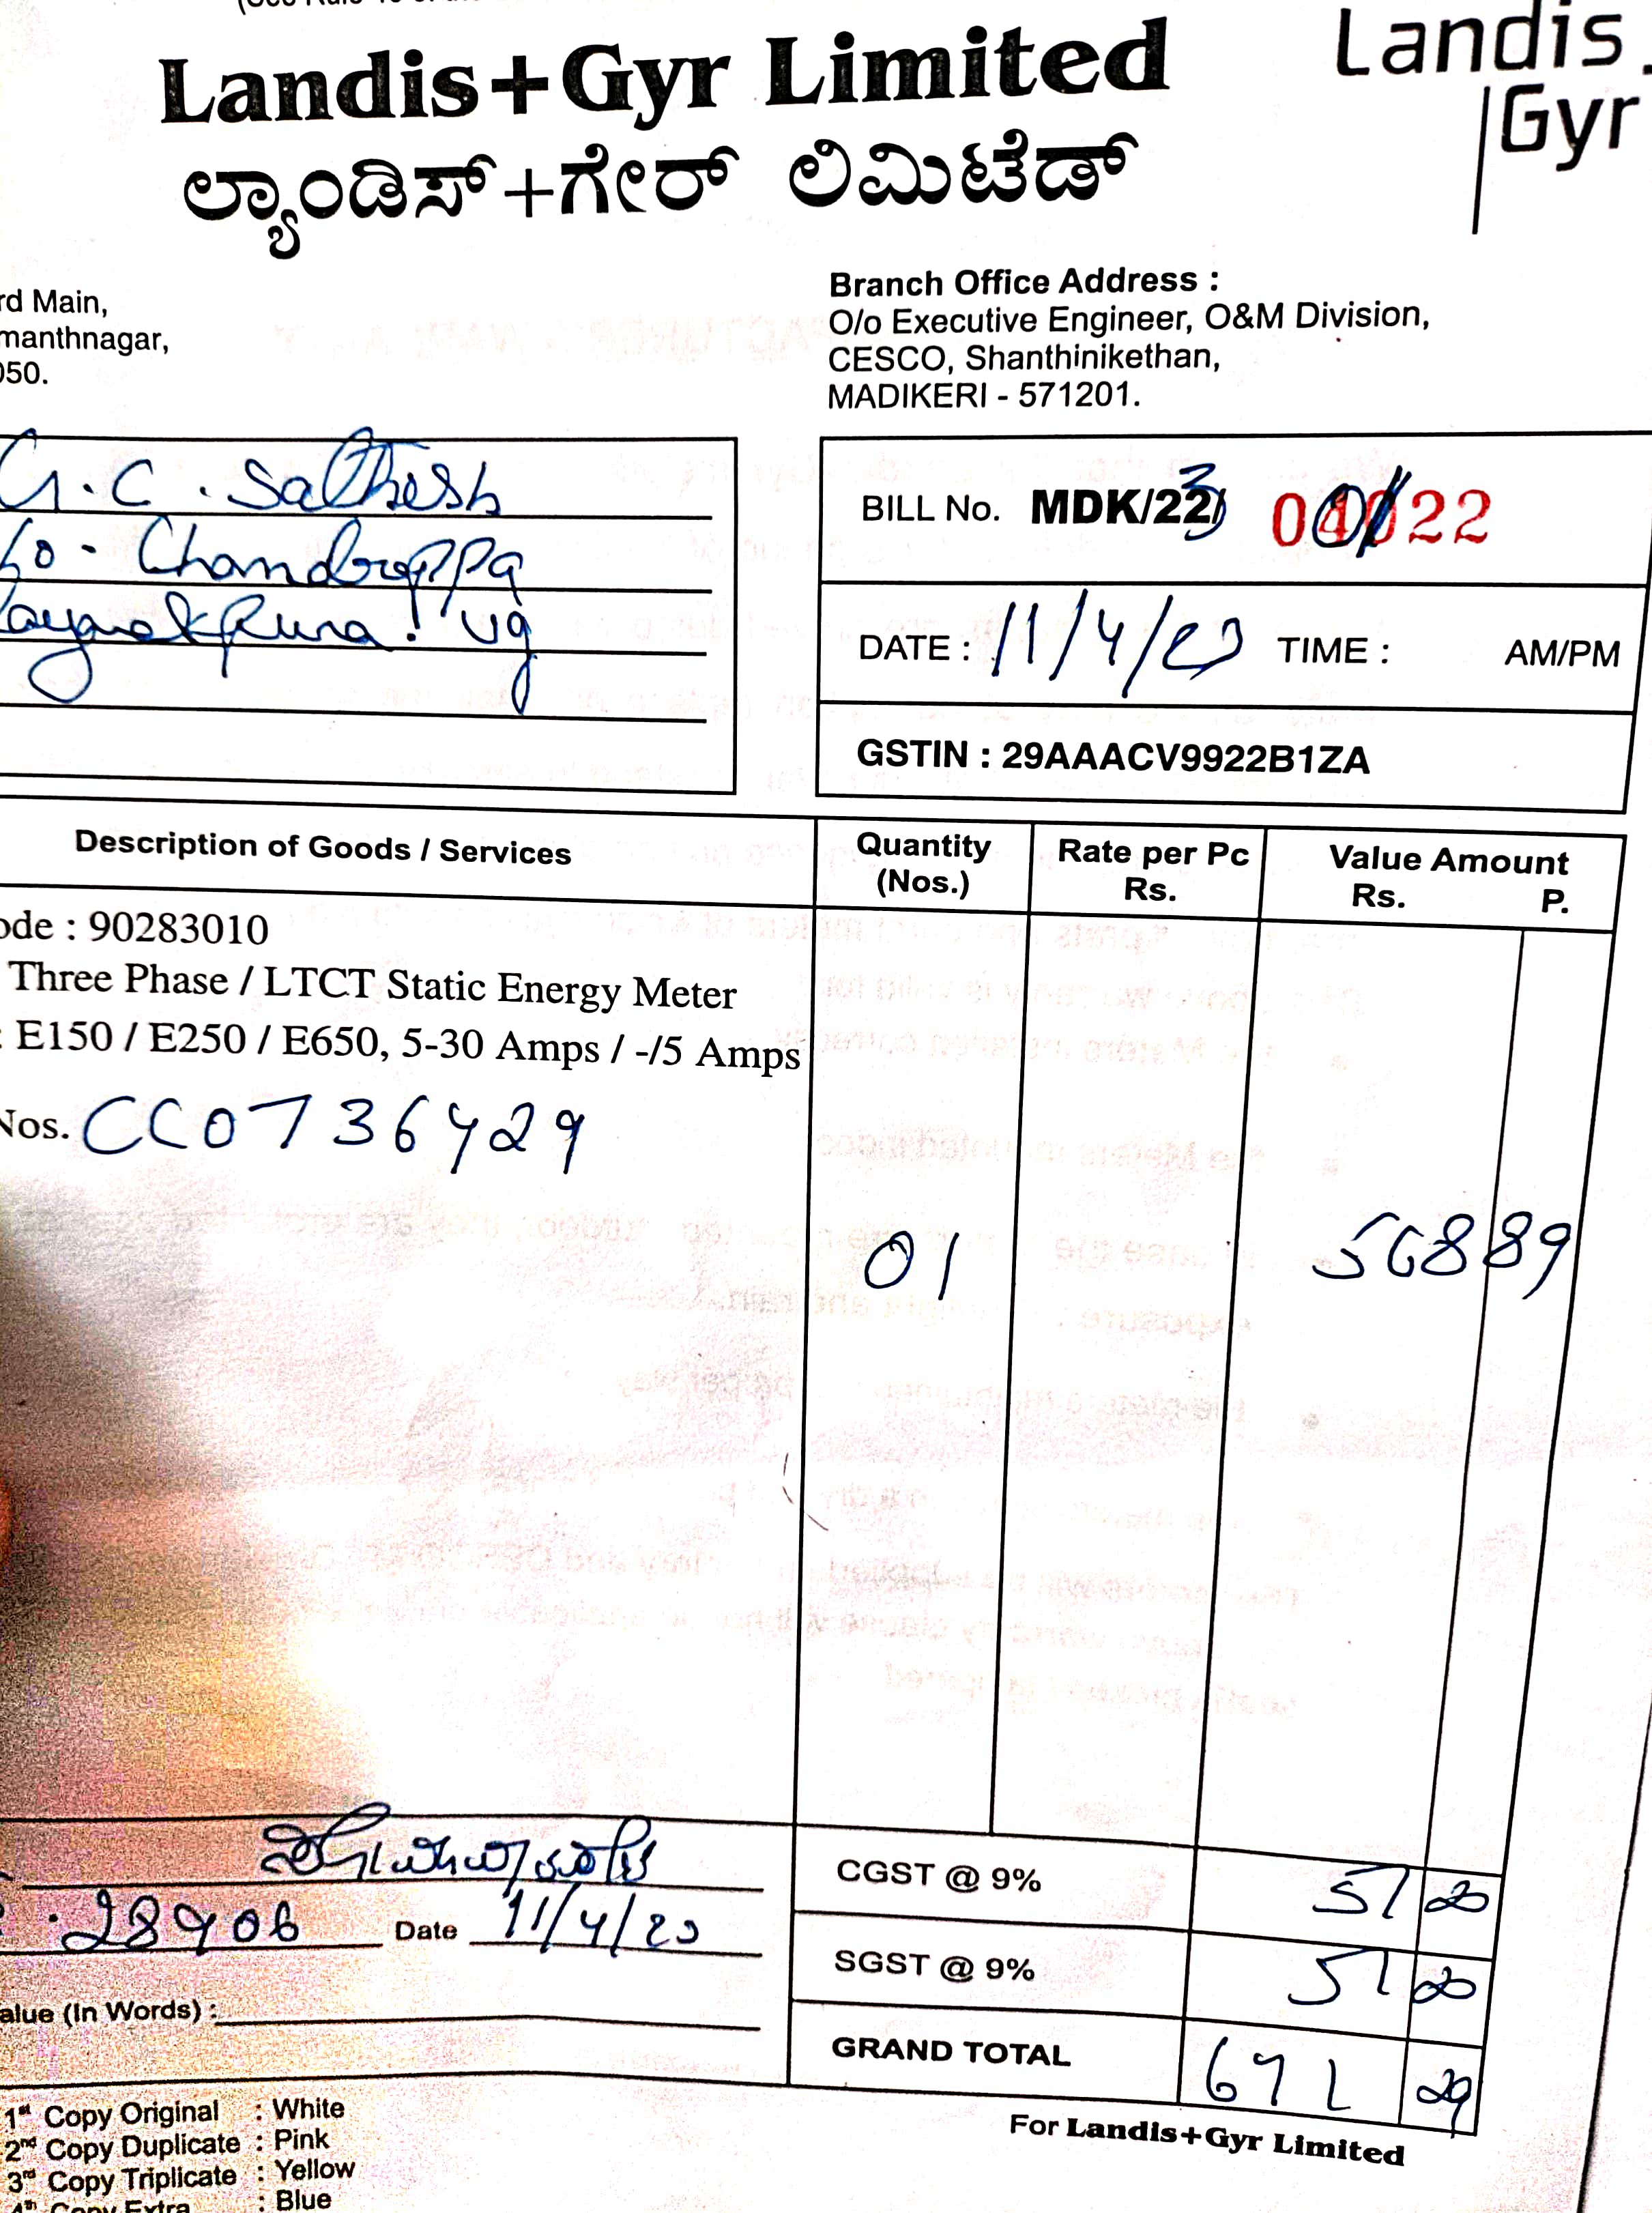 Landis+Gyr Limited
Landis
Gyr
ಲ್ಯಾಂಡಿಸ್+ಗೇರ್ ಲಿಮಿಟೆಡ್
rd Main,
manthnagar,
050.
Branch Office Address :
O/o Executive Engineer, O&M Division,
CESCO, Shanthinikethan,
MADIKERI - 571201.
G.C. Sathesh
Chandrappa
BILL No. MDK/223/ 22
DATE : 11/4/23 TIME : AM/PM
GSTIN : 29AAACV9922B1ZA
Description of Goods / Services
Quantity
(Nos.)
Rate per Pc
Rs.
Value Amount
Rs. P.
ode : 90283010
Three Phase / LTCT Static Energy Meter
: E150 / E250 / E650, 5-30 Amps / -/5 Amps
Nos. CC0736429
01 568 89
CGST @ 9% 51 20
28906 Date 11/4/23
SGST @ 9% 51 20
alue (In Words) :
GRAND TOTAL 671 29
For Landis+Gyr Limited
1st Copy Original : White
2nd Copy Duplicate : Pink
3rd Copy Triplicate : Yellow
4th Copy Extra : Blue